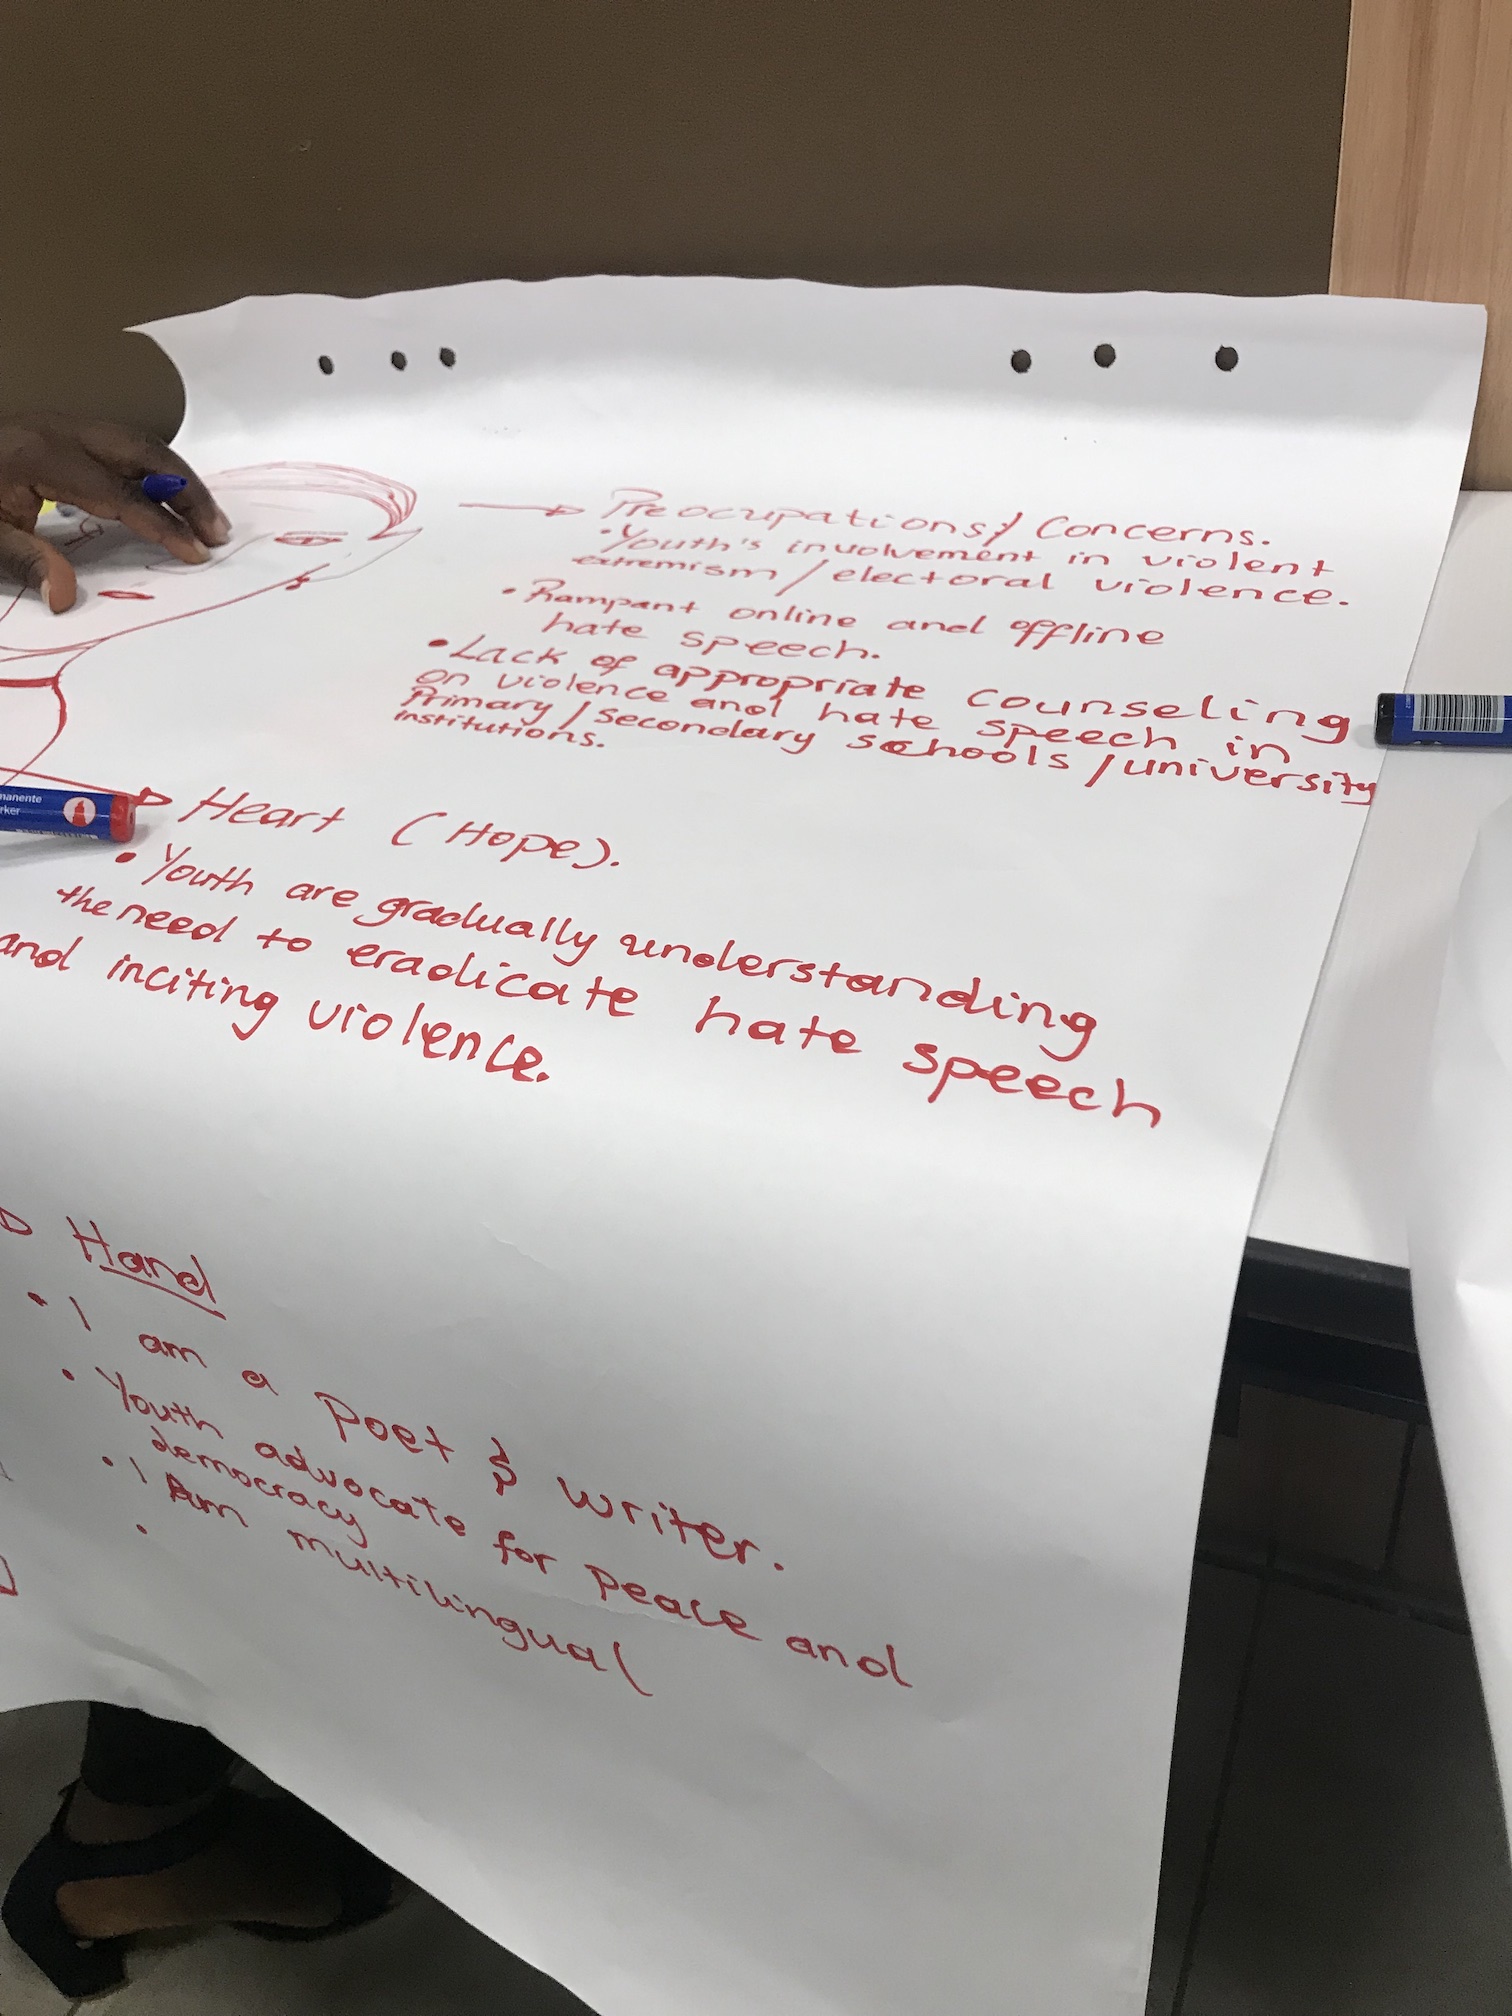 Preocupations/ Concerns.
• Youth's involvement in violent
extremism / electoral violence.
• Rampant online and offline
hate speech.
• Lack of appropriate counseling
on violence and hate speech in
Primary / Secondary schools / university
institutions.
Heart (Hope).
• Youth are gradually understanding
the need to eradicate hate speech
and inciting violence.
Hand
• I am a Poet & writer.
• Youth advocate for peace and
democracy
• I Am multilingual
•
manente
rker